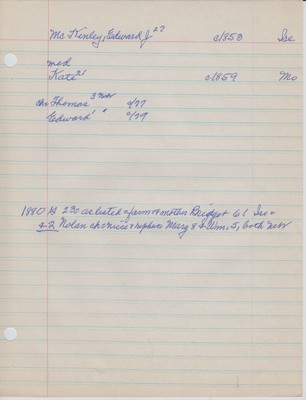 McKinley, Edward J 27 c1853 Ire
med
Kate 21 c1859 Mo
chr Thomas 3 Nev c/77
Edward 1 " c/79
1880 as listed farm + mother Bridget 61 Ire +
+ 2 Nolan ch = niece + nephew Mary 8 + Wm. 5, both Nev